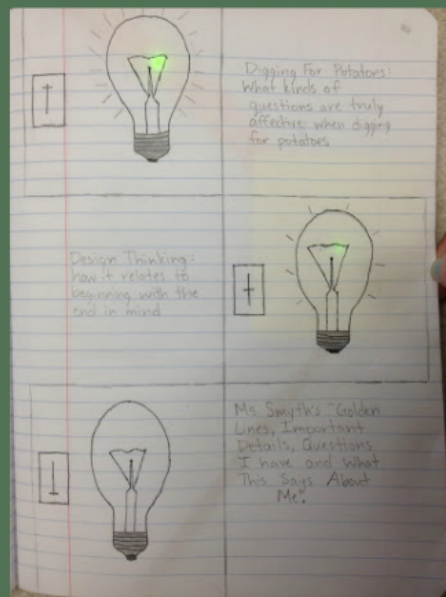 Digging For Potatoes:
What kinds of
questions are truly
affective when digging
for potatoes
Design Thinking:
how it relates to
beginning with the
end in mind
Ms. Smyth's "Golden
Lines, Important
Details, Questions
I have and What
This Says About
Me".